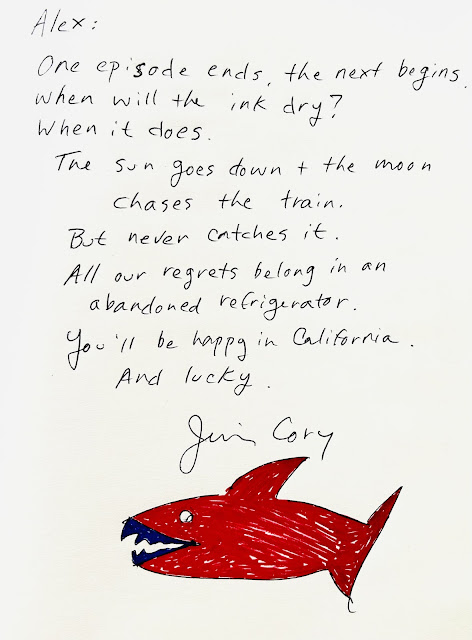 Alex:
One episode ends, the next begins.
When will the ink dry?
When it does.
The sun goes down + the moon
chases the train.
But never catches it.
All our regrets belong in an
abandoned refrigerator.
You'll be happy in California.
And lucky.
Jim Cory